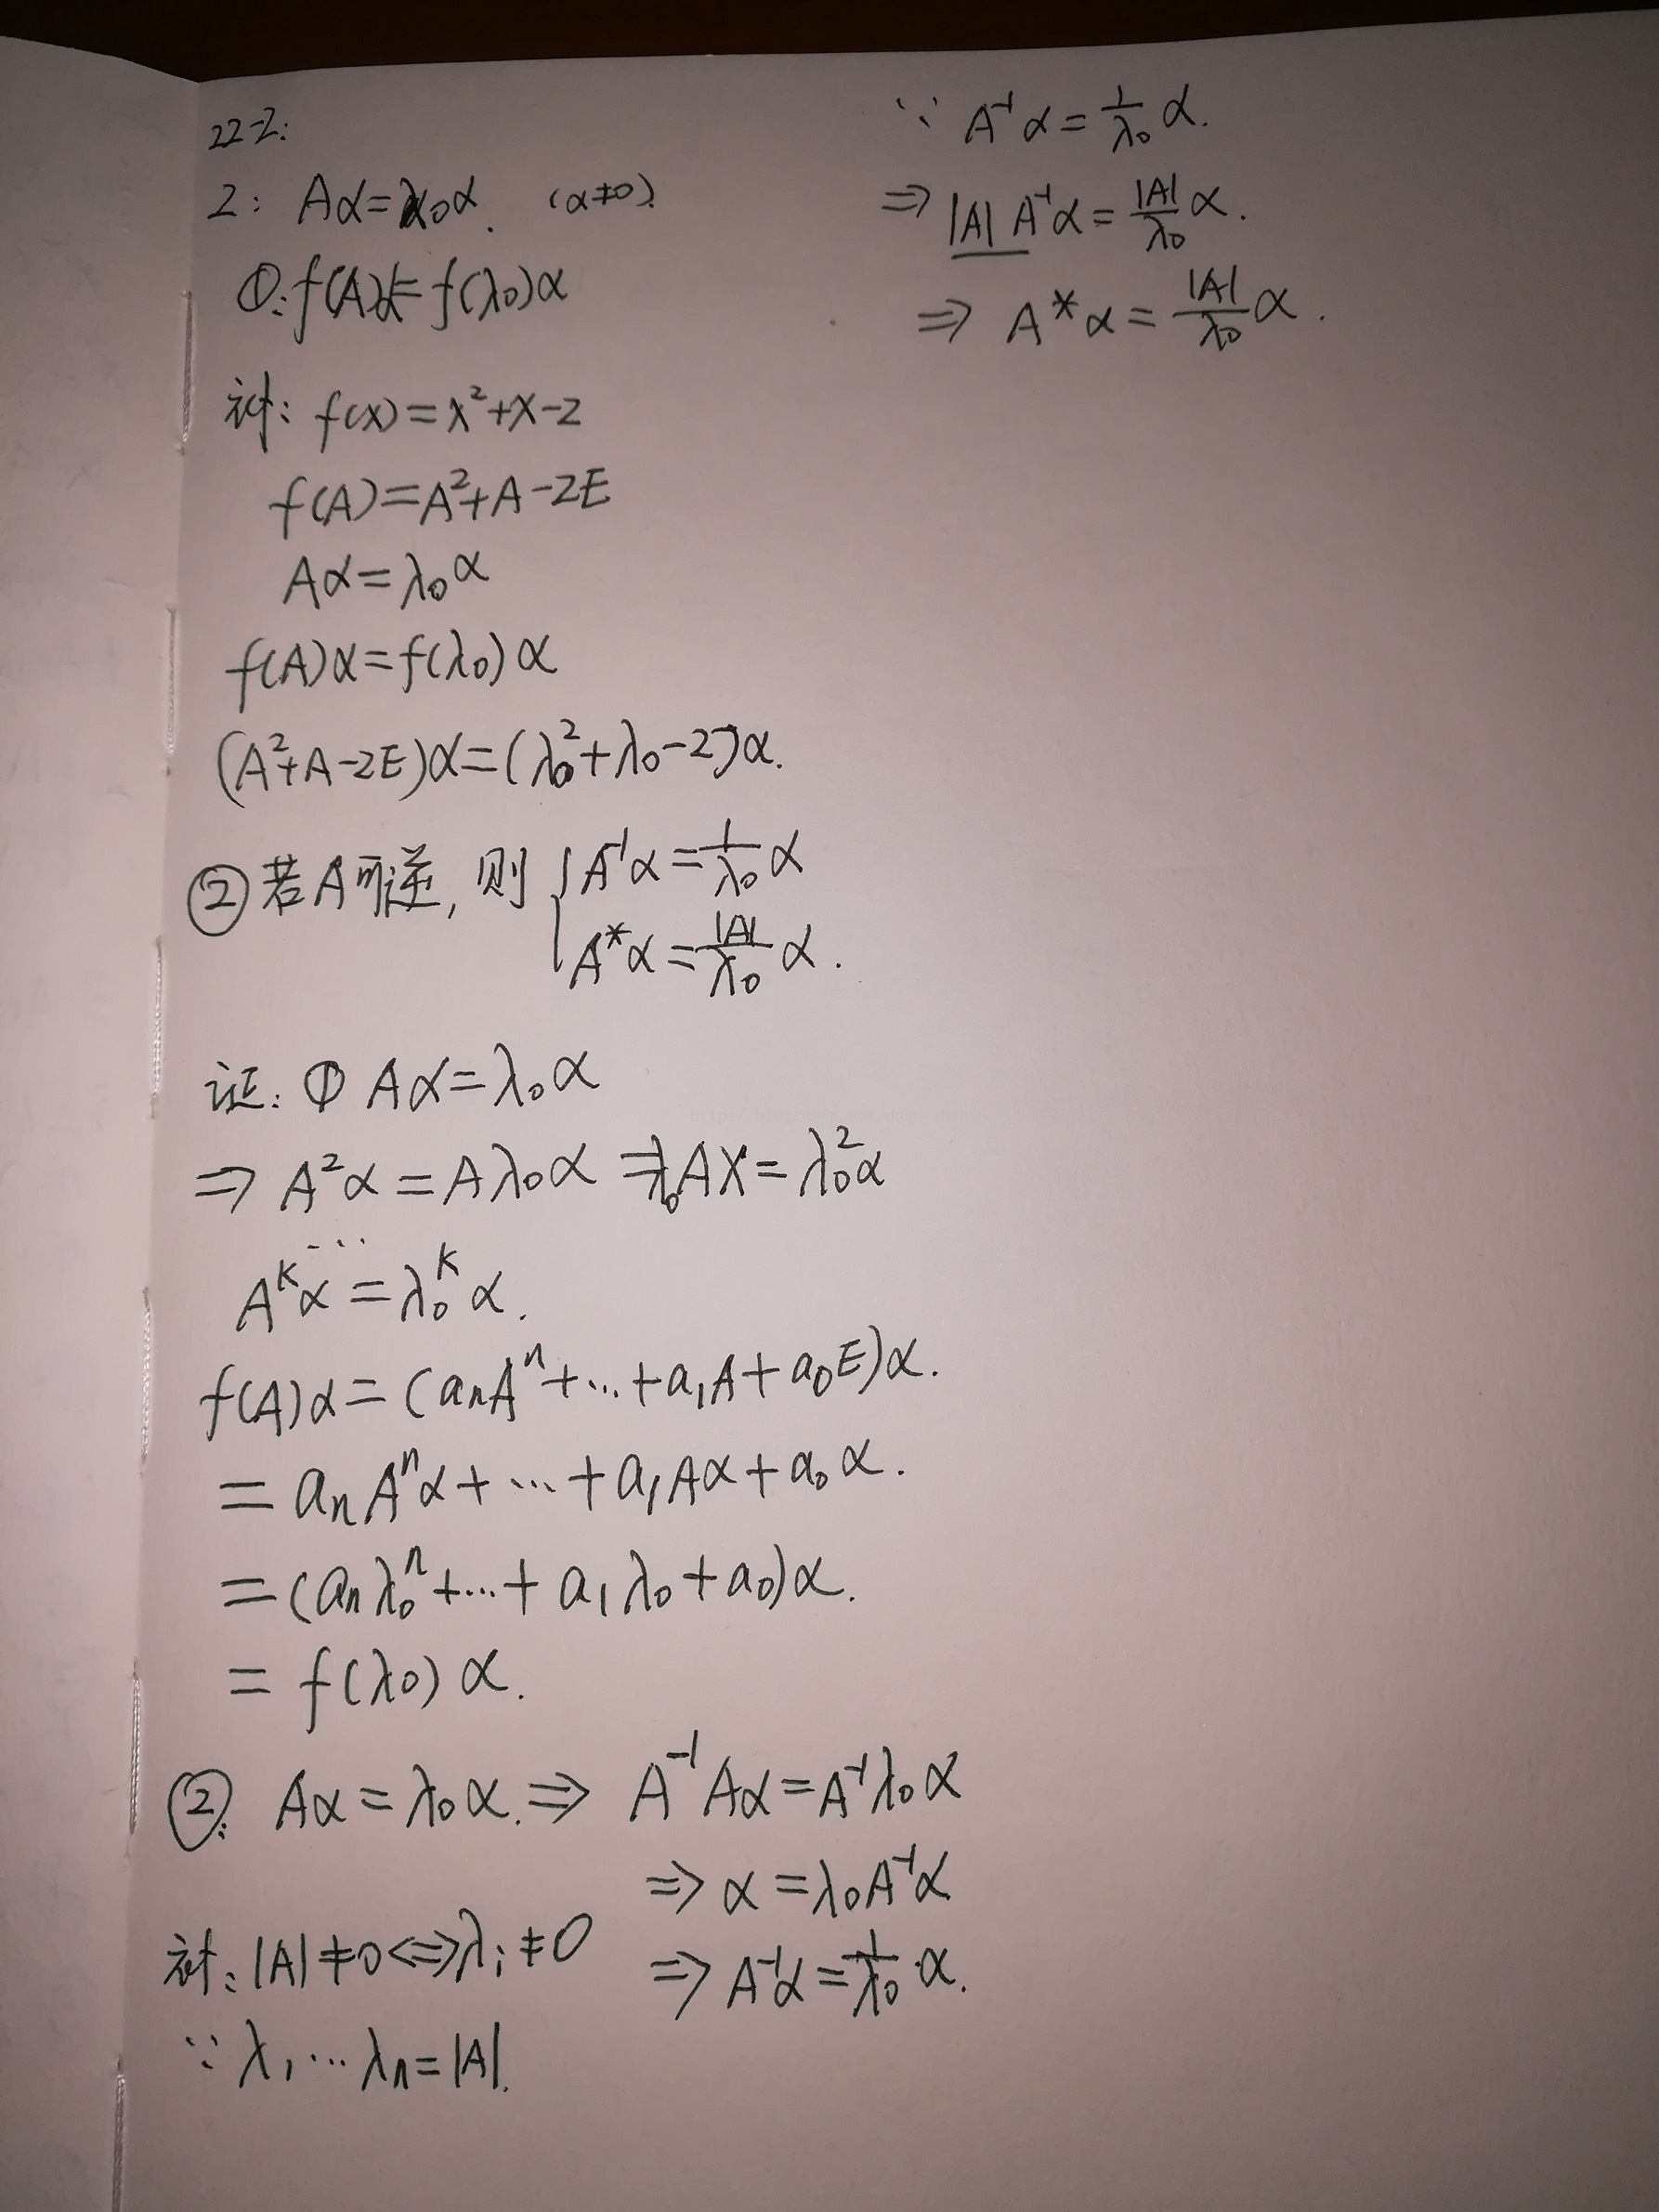 22-2:
2: Aα=λ₀α. (α≠0).
①: f(A)α=f(λ₀)α
衬: f(x)=x²+x-2
f(A)=A²+A-2E
Aα=λ₀α
f(A)α=f(λ₀)α
(A²+A-2E)α=(λ₀²+λ₀-2)α.
②若A可逆, 则 { A⁻¹α=1/λ₀ α
A*α=|A|/λ₀ α.
证: ① Aα=λ₀α
⇒ A²α=Aλ₀α ⇒λ₀AX=λ₀²α
...
Aᴷα=λ₀ᴷα.
f(A)α=(aₙAⁿ+...+a₁A+a₀E)α.
=aₙAⁿα+...+a₁Aα+a₀α.
=(aₙλ₀ⁿ+...+a₁λ₀+a₀)α.
=f(λ₀)α.
②: Aα=λ₀α. ⇒ A⁻¹Aα=A⁻¹λ₀α
⇒ α=λ₀A⁻¹α
衬: |A|≠0⇔λᵢ≠0 ⇒ A⁻¹α=1/λ₀·α.
∵ λ₁...λₙ=|A|.
∵ A⁻¹α=1/λ₀ α.
⇒ |A| A⁻¹α=|A|/λ₀ α.
⇒ A*α=|A|/λ₀ α.